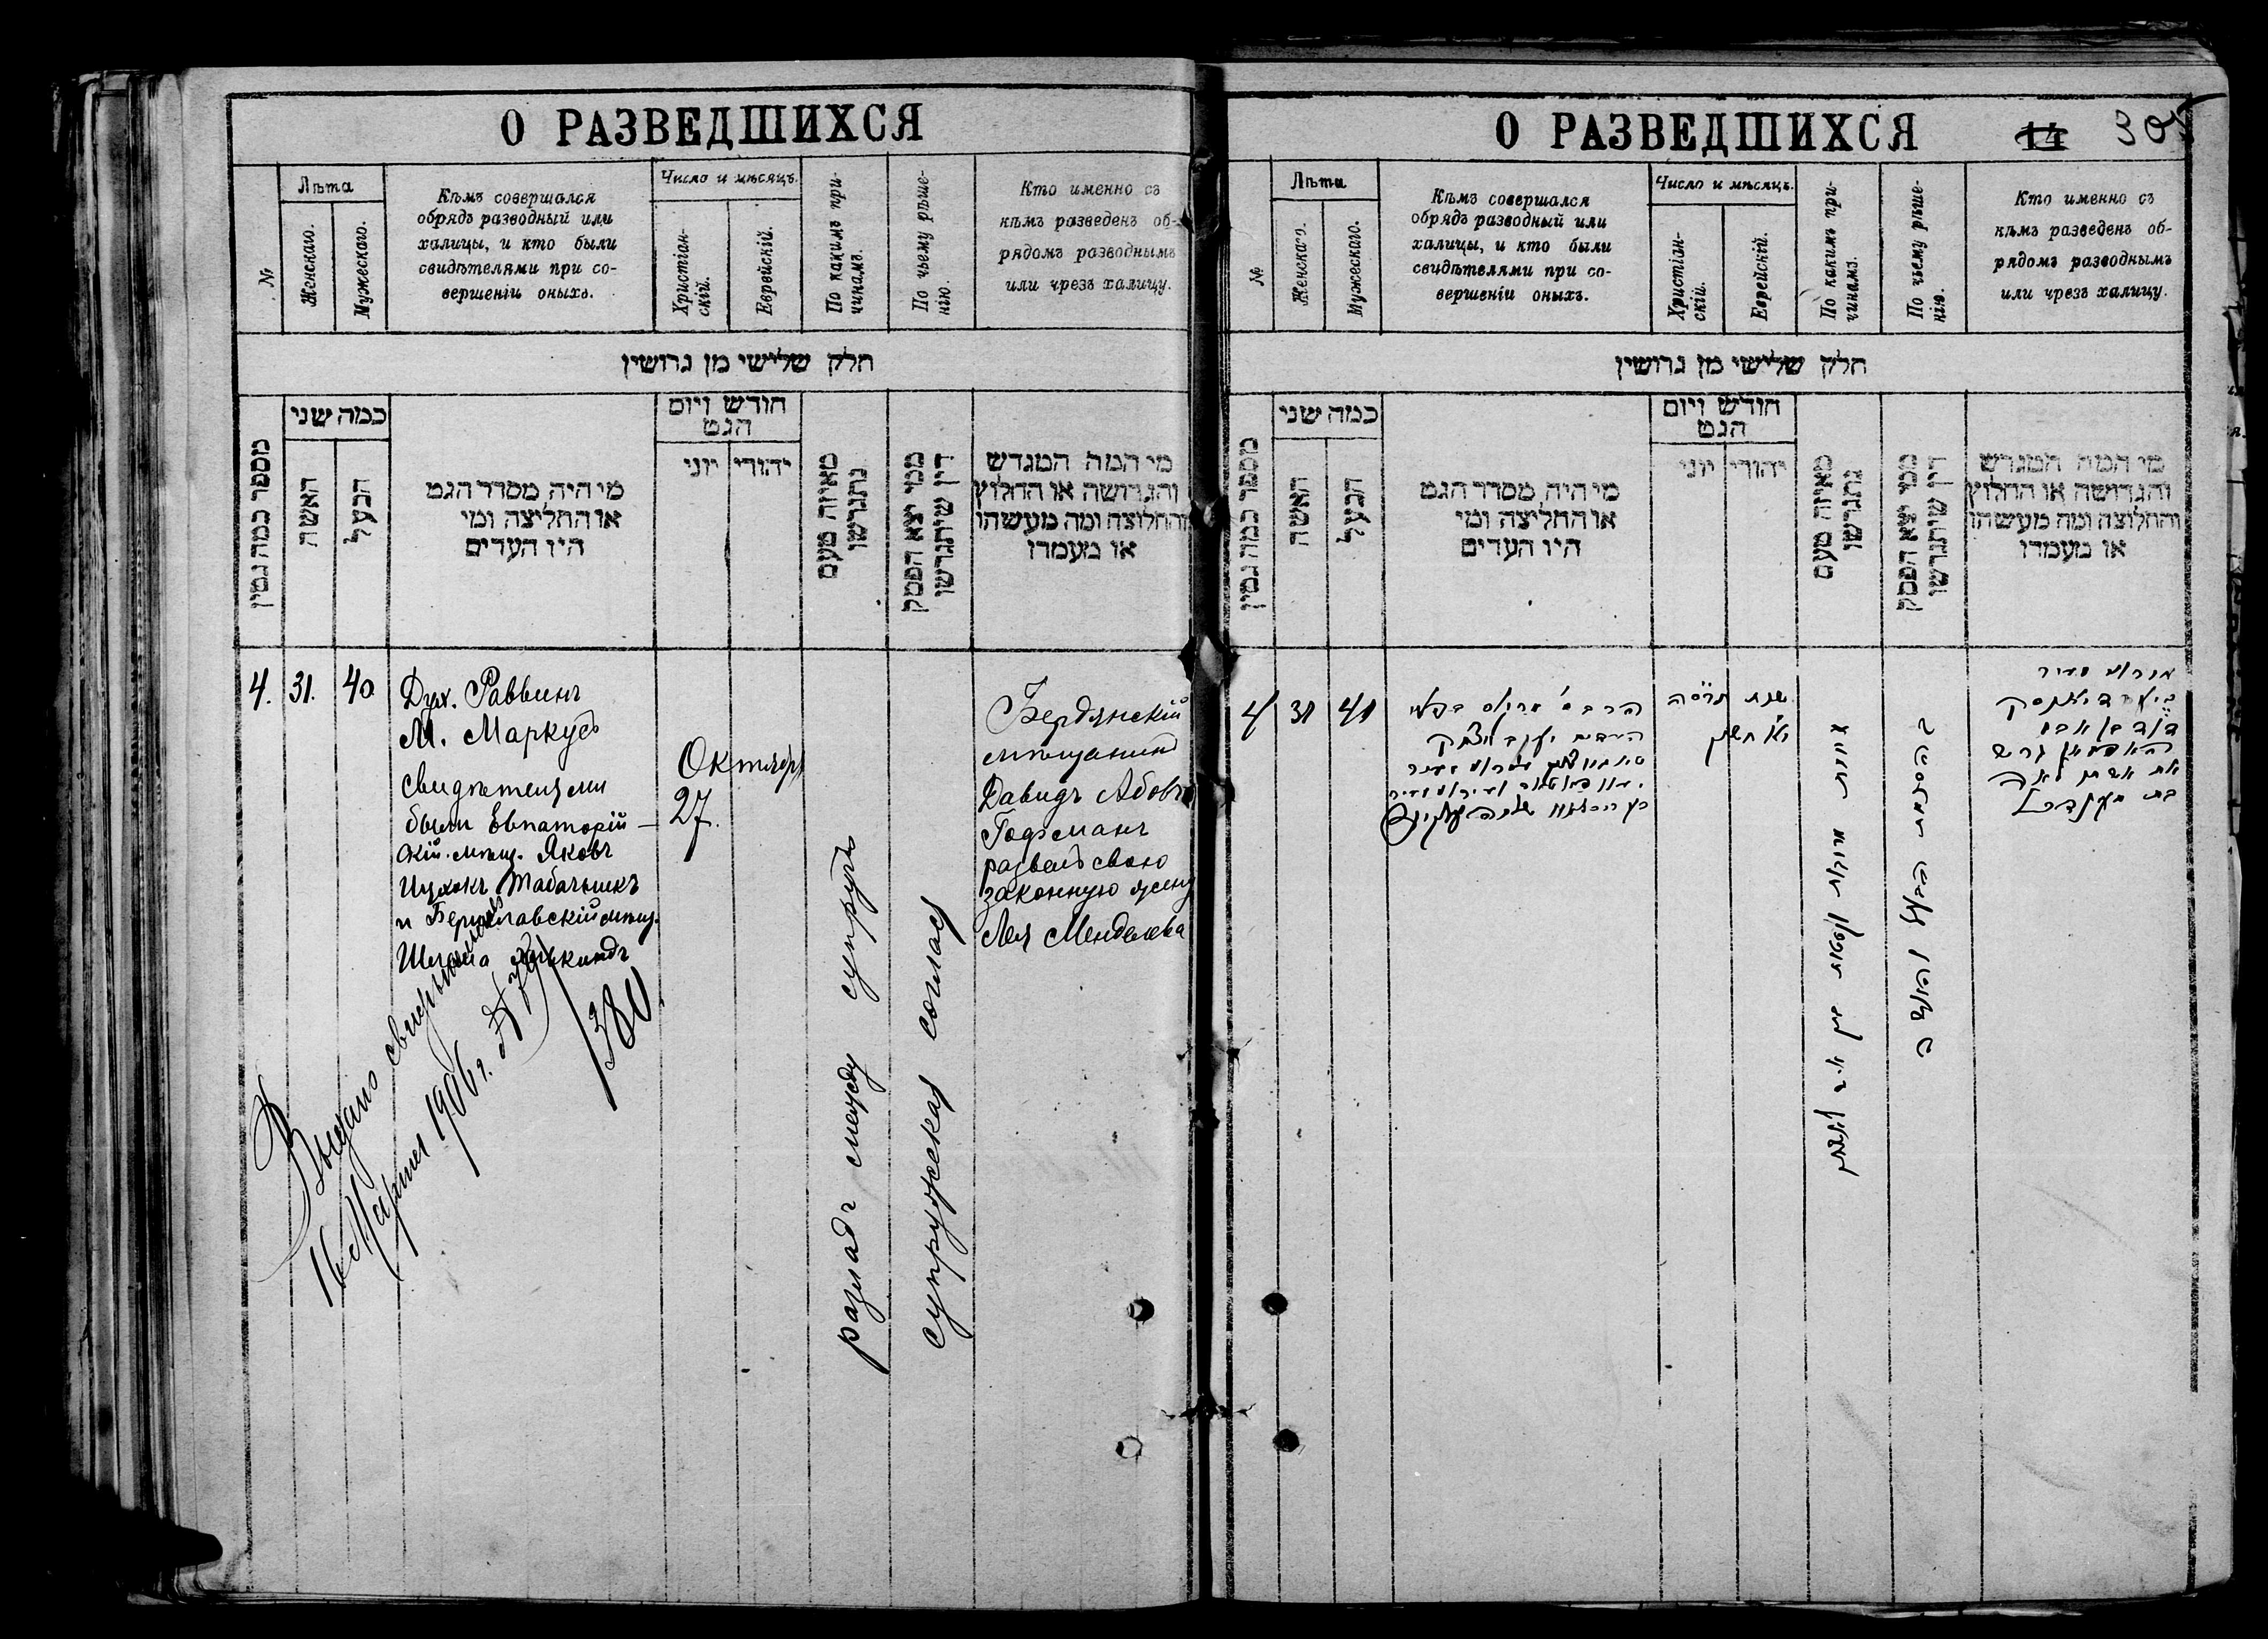 О РАЗВЕДШИХСЯ
№
Лѣта
Женскаго.
Мужескаго.
Кѣмъ совершался
обрядъ разводный или
халицы, и кто были
свидѣтелями при со-
вершеніи оныхъ.
Число и мѣсяцъ.
Христіан-
скій.
Еврейскій.
По какимъ при-
чинамъ.
По чьему рѣше-
нію.
Кто именно съ
кѣмъ разведенъ об-
рядомъ разводнымъ
или чрезъ халицу.
חלק שלישי מן גרושין
מספר כמה גטין
כמה שני
האשה
הבעל
מי היה מסדר הגט
או החליצה ומי
היו העדים
חודש ויום
הגט
יהודי
יוני
מאיזה טעם
נתגרשו
ממי יצא הפסק
דין שיתגרשו
מי המה המגדש
והגרושה או החלוץ
והחלוצה ומה מעשהו
או מעמדו
4.
31.
40
Дух. Раввинъ
М. Маркусъ
Свидѣтелями
были Евпаторій-
скій мѣщ. Яковъ
Ицхокъ Табачникъ
и Бериславскій мѣщ.
Шлема
Октября
27.
разладъ между супругъ
супружеская согласія
Бердянскій
мѣщанинъ
Давидъ Абовъ
Гофманъ
развелъ свою
законную жену
Лея Менделева
Выдано
16 Марта 1906 г.
380
О РАЗВЕДШИХСЯ
14
30
№
Лѣта
Женскаго.
Мужескаго.
Кѣмъ совершался
обрядъ разводный или
халицы, и кто были
свидѣтелями при со-
вершеніи оныхъ.
Число и мѣсяцъ.
Христіан-
скій.
Еврейскій.
По какимъ при-
чинамъ.
По чьему рѣше-
нію.
Кто именно съ
кѣмъ разведенъ об-
рядомъ разводнымъ
или чрезъ халицу.
חלק שלישי מן גרושין
מספר כמה גטין
כמה שני
האשה
הבעל
מי היה מסדר הגט
או החליצה ומי
היו העדים
חודש ויום
הגט
יהודי
יוני
מאיזה טעם
נתגרשו
ממי יצא הפסק
דין שיתגרשו
מי המה המגרש
והגרושה או החלוץ
והחלוצה ומה מעשהו
או מעמדו
4
31
שנת תרס״ה
הרב
העדים יעקב יצחק
דוד בן אבא
גרש
את אשתו לאה
בת